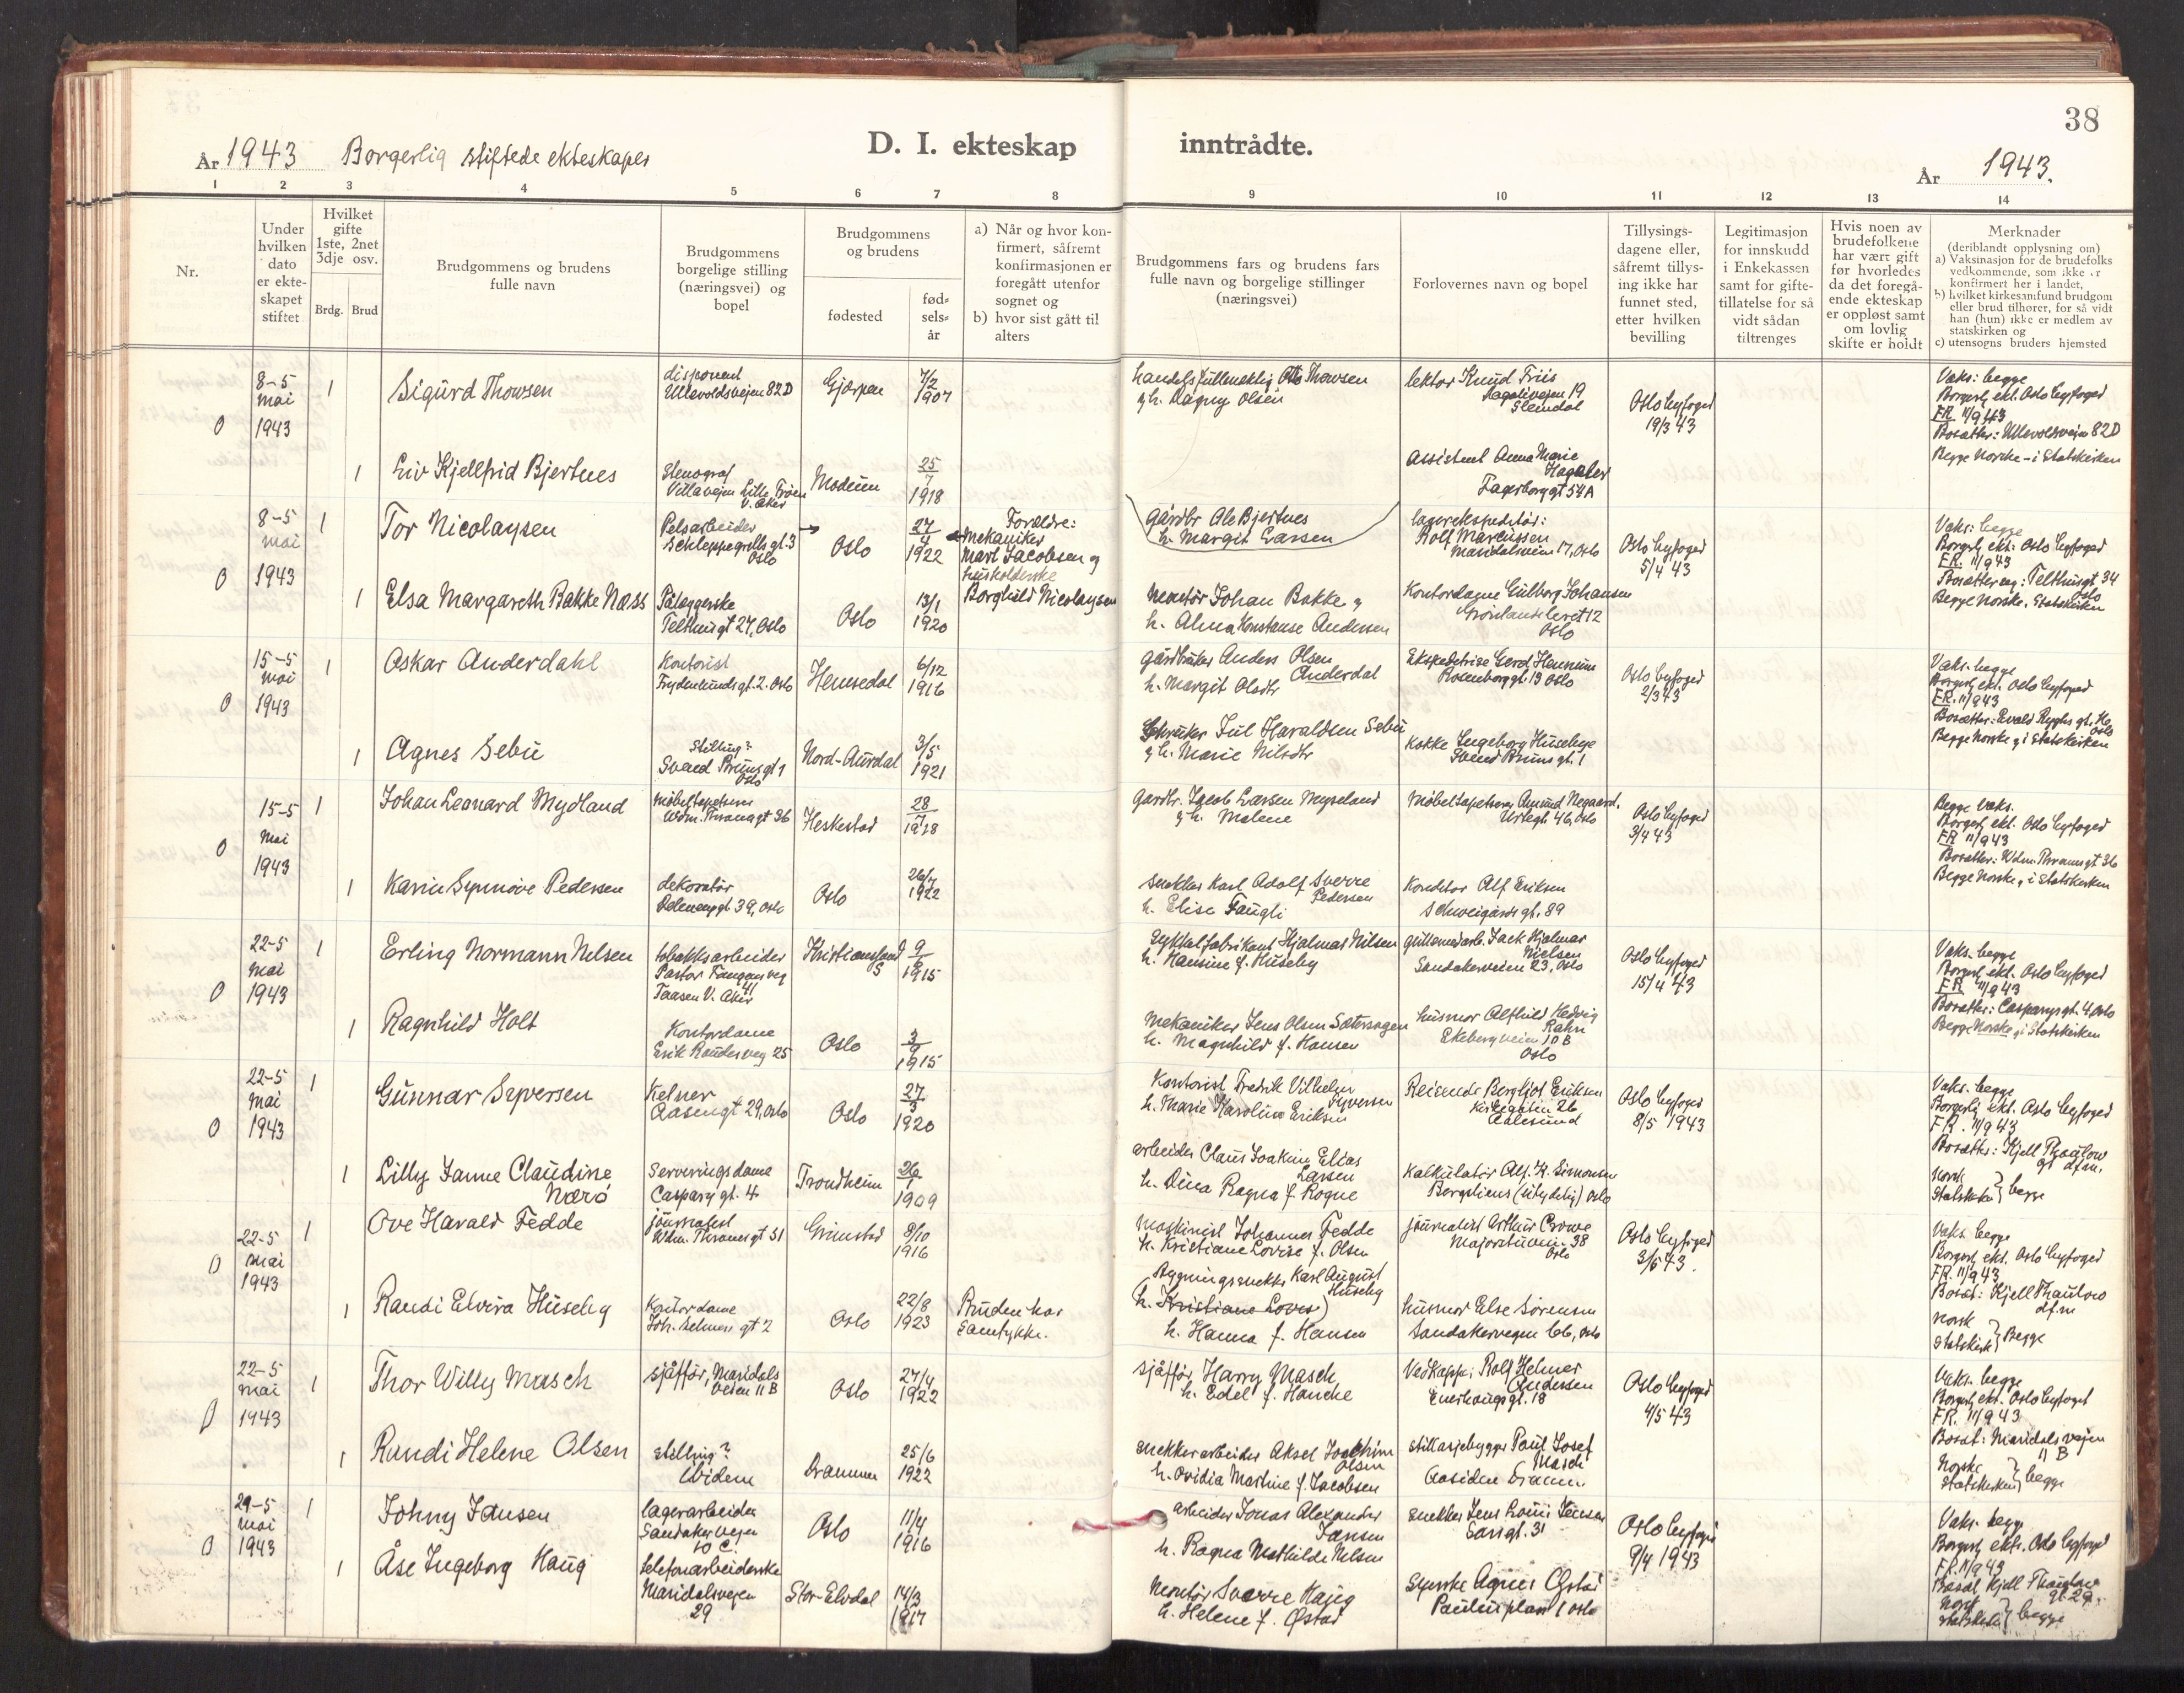 38
År 1943 Borgerlig stiftede ekteskaper
D. I. ekteskap inntrådte.
År 1943.
1 2 3 4 5 6 7 8 9 10 11 12 13 14
Nr.
Under
hvilken
dato
er ekte-
skapet
stiftet
Hvilket
gifte
1ste, 2net
3dje osv.
Brdg. Brud
Brudgommens og brudens
fulle navn
Brudgommens
borgelige stilling
(næringsvei) og
bopel
Brudgommens
og brudens
fødested
fød-
sels-
år
a) Når og hvor kon-
firmert, såfremt
konfirmasjonen er
foregått utenfor
sognet og
b) hvor sist gått til
alters
Brudgommens fars og brudens fars
fulle navn og borgelige stillinger
(næringsvei)
Forlovernes navn og bopel
Tillysings-
dagene eller,
såfremt tillys-
ing ikke har
funnet sted,
etter hvilken
bevilling
Legitimasjon
for innskudd
i Enkekassen
samt for gifte-
tillatelse for så
vidt sådan
tiltrenges
Hvis noen av
brudefolkene
har vært gift
før hvorledes
da det foregå-
ende ekteskap
er oppløst samt
om lovlig
skifte er holdt
Merknader
(deriblandt opplysning om)
a) Vaksinasjon for de brudefolks
vedkommende, som ikke er
konfirmert her i landet,
b) hvilket kirkesamfund brudgom
eller brud tilhører, for så vidt
han (hun) ikke er medlem av
statskirken og
c) utensogns bruders hjemsted
8-5
mai
1943
0
1
Sigurd Thowsen
disponent
Ullevoldsvejen 82D
Gjerpen
7/2
1907
handelsfullmektig Otto Thowsen
g h. Dagny Olsen
lektor Knud Friis
19
Slemdal
Oslo byfoged
19/3 43
Vaks: begge
Borgerl. ekt. Oslo byfoged
FR. 11/9 43
Bosætter: Ullevoldsveien 82D
Begge norske - i Statskirken
1
Liv Kjellfrid Bjertnes
Stenograf
Villaveien Lille Frøen
V. Aker
Modum
25
7
1918
Assistent Anna Marie
Fagerborggt 54A
gårdbr Ole Bjertnes
h. Margit Larsen
8-5
mai
1943
0
1
Tor Nicolaysen
Pelsarbeider
Schleppegrells gt. 3
Oslo
Oslo
27
4
1922
Forældre:
mekaniker
Jacobsen og
husholderske
Borghild Nicolaysen
lagerekspeditør:
Rolf Marcussen
Maridalsveien 17, Oslo
Oslo byfoged
5/4 43
Vaks: begge
Borgerl. ekt. Oslo byfoged
FR. 11/9 43
Bosætter seg: Telthusgt 34
Oslo
Begge norske. Statskirken
1
Elsa Margareth Bakke Næss
Pålæggerske
Telthusgt 27, Oslo
Oslo
13/1
1920
Montør Johan Bakke g
h. Alma Konstanse Andersen
Kontordame Gulborg Johansen
Grønlandsleret 12
Oslo
15-5
mai
1943
0
1
Oskar Anderdahl
Kontorist
Frydenlundsgt. 2. Oslo
Hemsedal
6/12
1916
gårdbruker Anders Olsen
Anderdal
h. Margit Olsdtr
Ekspeditrise Gerd Hennum
Rosenborggt. 19 Oslo
Oslo byfoged
2/3 43
Vaks. begge
Borgerl. ekt. Oslo byfoged
FR. 11/9 43
Bosætter: Evald Ryghs gt. 16
Oslo
Begge norske g i Statskirken
1
Agnes Sebu
Stilling?
Svend Brunsgt 1
Oslo
Nord-Aurdal
3/5
1921
Gbruker Jul Haraldsen Sebu
g h. Marie Nilsdtr
Kokke Ingeborg Huseby
Svend Bruns gt. 1
15-5
mai
1943
0
1
Johan Leonard Mydland
møbeltapetserer
Wdm. Thranesgt 36
Heskestad
28
7
1918
Gardbr. Jacob Larsen Myreland
g h. Malene
møbeltapetserer Amund Negaard,
Urtegt. 46, Oslo
Oslo byfoged
3/4 43
Begge Vaks.
Borgerl. ekt. Oslo byfoged
FR 11/9 43
Bosætter: Wdm. Thranesgt 36
Begge norske, i Statskirken
1
Karin Synnøve Pedersen
dekoratør
39, Oslo
Oslo
26/7
1922
snekker Karl Adolf Sverre
Pedersen
h. Elise Faugli
Konditor Alf Eriksen
Schweigårds gt. 89
22-5
mai
1943
0
1
Erling Normann Nilsen
tobakksarbeider
Pastor Fangens veg
41
Taasen V. Aker
Kristiansand
S
9
6
1915
Sykkelfabrikant Hjalmar Nilsen
h. Hansine f. Huseby
gullsmedarb. Jack Hjalmar
Nielsen
Sandakerveien 23, Oslo
Oslo byfoged
15/4 43
Vaks. begge
Borgerl. ekt. Oslo byfoged
FR. 11/9 43
Bosætter: Casparys gt. 4, Oslo
Begge norske g i Statskirken
1
Ragnhild Holt
Kontordame
Erik Raudes veg 25
Oslo
3
9
1915
Mekaniker Jens Olsen
h. Magnhild f. Hansen
husmor Alfhild Hedvig
Rahn
Ekebergveien 10 B
Oslo
22-5
mai
1943
0
1
Gunnar Syversen
Kelner
Aasengt 29, Oslo
Oslo
27
3
1920
Kontorist Fredrik Vilhelm
Syversen
h. Marie Karoline Eriksen
Reisende Bergljot Eriksen
Kirkegaten 26
Aalesund
Oslo byfoged
8/5 1943
Vaks. begge
Borgerlig ekt. Oslo byfoged
FR. 11/9 43
Bosætter: Kjell Thaulow
gt
Norsk
Statskirken } begge
1
Lilly Janne Claudine
Nærø
Serveringsdame
Casparys gt. 4
Trondheim
26
1
1909
arbeider Claus Joakim Elias
Larsen
h. Dina Ragna f. Rogne
Kalkulatør Alf. K. Simonsen
Bergsliens (utydelig) Oslo
22-5
mai
1943
0
1
Ove Harald Fedde
journalist
Wdm. Thranesgt 51
Grimstad
8/10
1916
Maskinist Johannes Fedde
h. Kristiane Lovise f. Olsen
journalist Arthur Crowe
Majorstuvn. 38
Oslo
Oslo byfoged
3/5 43.
Vaks. begge
Borgerl. ekt. Oslo byfoged
FR. 11/9 43
Bosat: Kjell Thaulow
Norsk
Statskirk } Begge
1
Randi Elvira Huseby
Kontordame
Joh. Selmers gt 2
Oslo
22/8
1923
Bruden har
samtykke.
Bygningssnekker Karl August
Huseby
h. Kristiane Lovis)
h. Hanna f. Hansen
husmor Else Sørensen
Sandakervegen 66, Oslo
22-5
mai
1943
0
1
Thor Willy Masch
sjåfför, Maridals
veien 11 B
Oslo
27/4
1922
sjåfför Harry Masch
h. Edel f. Hancke
Rolf Helmer
Andersen
Enerhaugsgt. 18
Oslo byfoged
4/5 43
Vaks. begge
Borgerl. ekt. Oslo byfoged
FR. 11/9 43
Bosat: Maridalsvejen
11 B
Norske
Statskirken } begge
1
Randi Helene Olsen
stilling?
ibidem
Drammen
25/6
1922
snekkerarbeider Aksel Joachim
Olsen
h. Ovidia Martine f. Jacobsen
stillasjebygger Paul Josef
Masch
29-5
mai
1943
0
1
Johny Jansen
lagerarbeider
Sandakerveien
10 C.
Oslo
11/4
1916
arbeider Jonas Alexander
Jansen
h. Ragna Mathilde Nilsen
snekker Jens Louis Jensen
Sarsgt. 31
Oslo byfoged
9/4 1943
Vaks. begge
Borgerl. ekt. Oslo byfoged
FR. 11/9 43
Bosat Kjell Thaulow
gt. 29.
Norsk
Statskirk } begge
1
Åse Ingeborg Haug
telefonarbeiderske
Maridalsvejen
29
Stor-Elvdal
14/3
1917
Montør Sverre Haug
h. Helene f. Østad
Syerske Agnes Øystad
Paulus plass 1 Oslo